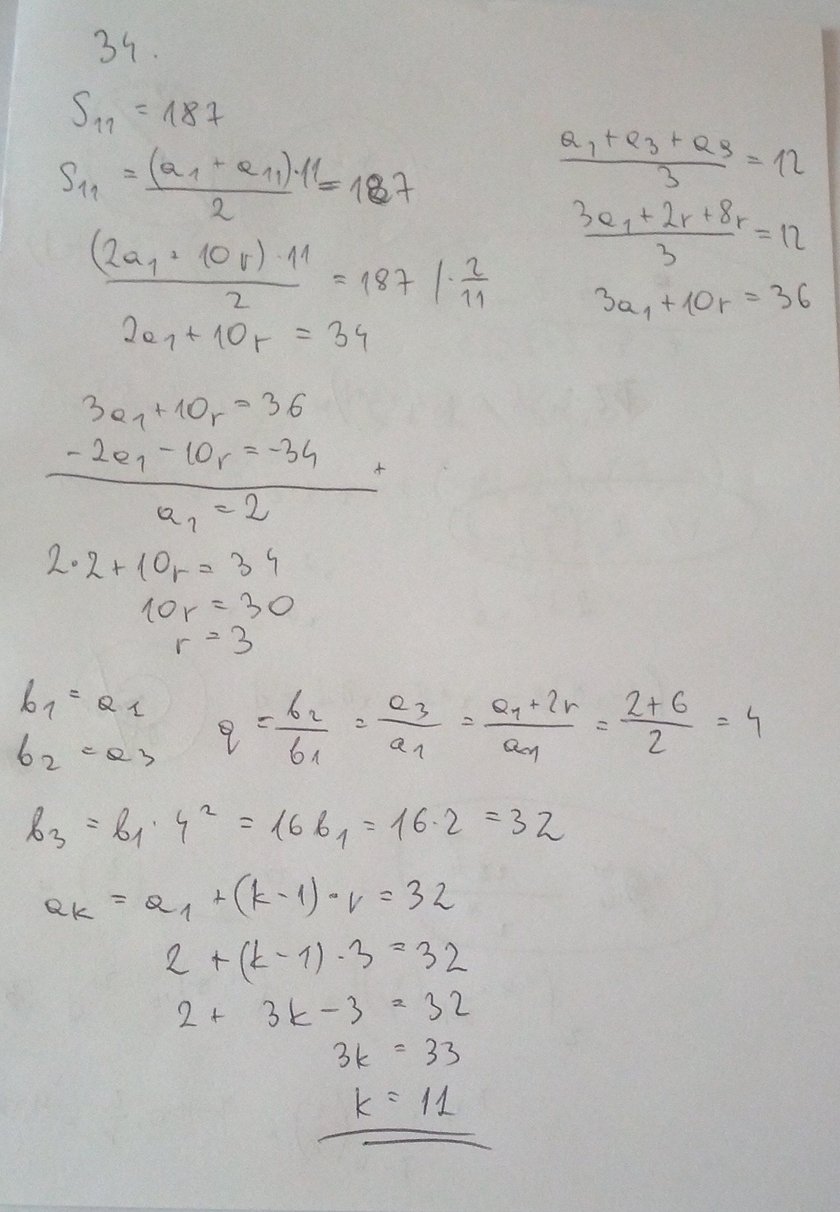 34.
S₁₁ = 187
S₁₁ = (a₁ + a₁₁)·11 / 2 = 187
(2a₁ + 10r)·11 / 2 = 187 /· 2/11
2a₁ + 10r = 34
(a₁ + a₃ + a₉) / 3 = 12
(3a₁ + 2r + 8r) / 3 = 12
3a₁ + 10r = 36
3a₁ + 10r = 36
-2a₁ - 10r = -34 +
a₁ = 2
2·2 + 10r = 34
10r = 30
r = 3
b₁ = a₁
b₂ = a₃
q = b₂/b₁ = a₃/a₁ = (a₁ + 2r)/a₁ = (2+6)/2 = 4
b₃ = b₁·4² = 16b₁ = 16·2 = 32
aₖ = a₁ + (k-1)·r = 32
2 + (k-1)·3 = 32
2 + 3k - 3 = 32
3k = 33
k = 11